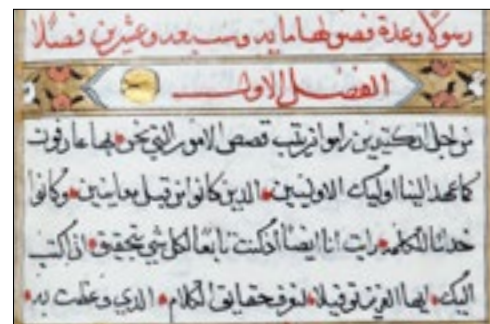 رسولا وعدة فصولها مايه وسبعه وعشرين فصلا
الفصل الاول
من اجل ان كثيرين راموا ترتيب قصص الامور التي نحن بها عارفون
كما عهد الينا اوليك الاولين الذين كانوا من قبل معاينين وكانوا
خداما للكلمه رايت انا ايضا اذ كنت تابعا لكل شي بتحقيق ان اكتب
اليك ايها العزيز توفيلا لتعرف حقايق الكلام الذي وعظت به